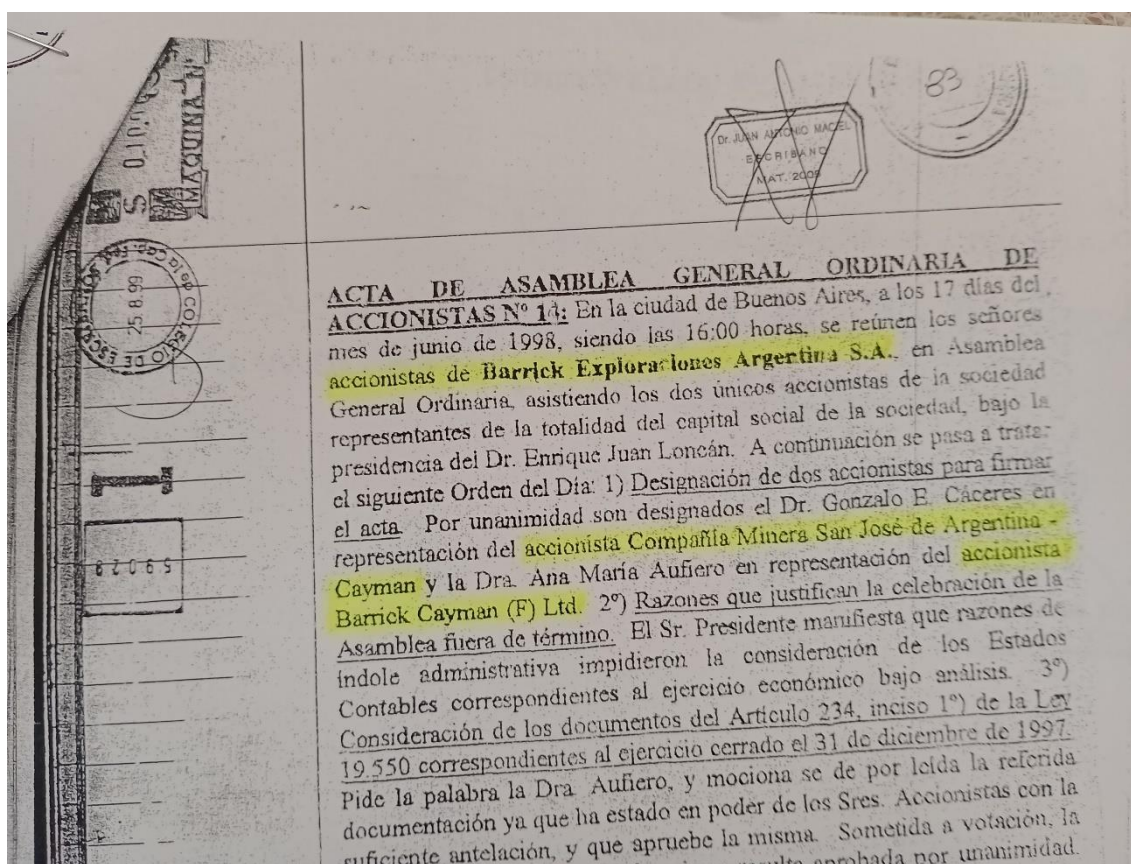 83
Dr. JUAN ANTONIO MACIEL
ESCRIBANO
MAT. 2009
S 0100
MAQUINA N°
COLEGIO DE ESCRI
de la Cap. Fed.
25.8.99
59028
ACTA DE ASAMBLEA GENERAL ORDINARIA DE
ACCIONISTAS Nº 14: En la ciudad de Buenos Aires, a los 17 días del
mes de junio de 1998, siendo las 16:00 horas, se reúnen los señores
accionistas de Barrick Exploraciones Argentina S.A., en Asamblea
General Ordinaria, asistiendo los dos únicos accionistas de la sociedad
representantes de la totalidad del capital social de la sociedad, bajo la
presidencia del Dr. Enrique Juan Loncán. A continuación se pasa a tratar
el siguiente Orden del Día: 1) Designación de dos accionistas para firmar
el acta. Por unanimidad son designados el Dr. Gonzalo E. Cáceres en
representación del accionista Compañía Minera San José de Argentina -
Cayman y la Dra. Ana María Aufiero en representación del accionista
Barrick Cayman (F) Ltd. 2º) Razones que justifican la celebración de la
Asamblea fuera de término. El Sr. Presidente manifiesta que razones de
índole administrativa impidieron la consideración de los Estados
Contables correspondientes al ejercicio económico bajo análisis. 3º)
Consideración de los documentos del Artículo 234, inciso 1º) de la Ley
19.550 correspondientes al ejercicio cerrado el 31 de diciembre de 1997.
Pide la palabra la Dra. Aufiero, y mociona se de por leída la referida
documentación ya que ha estado en poder de los Sres. Accionistas con la
suficiente antelación, y que apruebe la misma. Sometida a votación, la
aprobada por unanimidad.